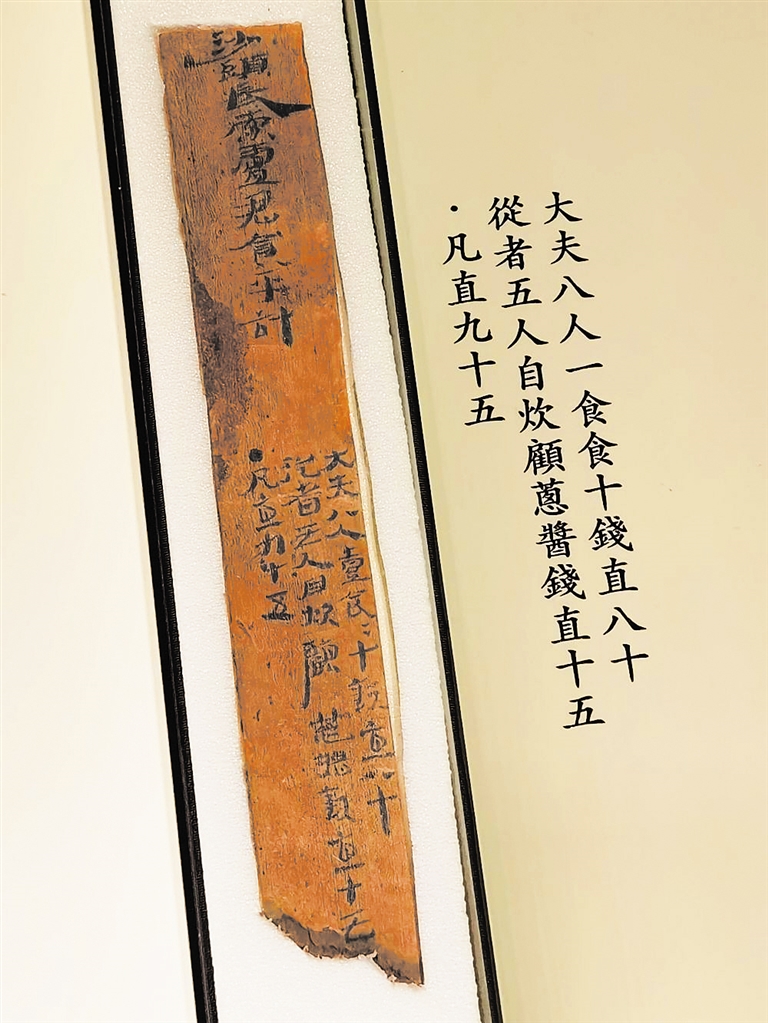 大夫八人一食食十錢直八十
從者五人自炊顧蔥醬錢直十五
・凡直九十五
沙頭 食平計
大夫八人壹食〻十錢直八十
從者五人自炊顧蔥醬錢直十五
・凡直九十五